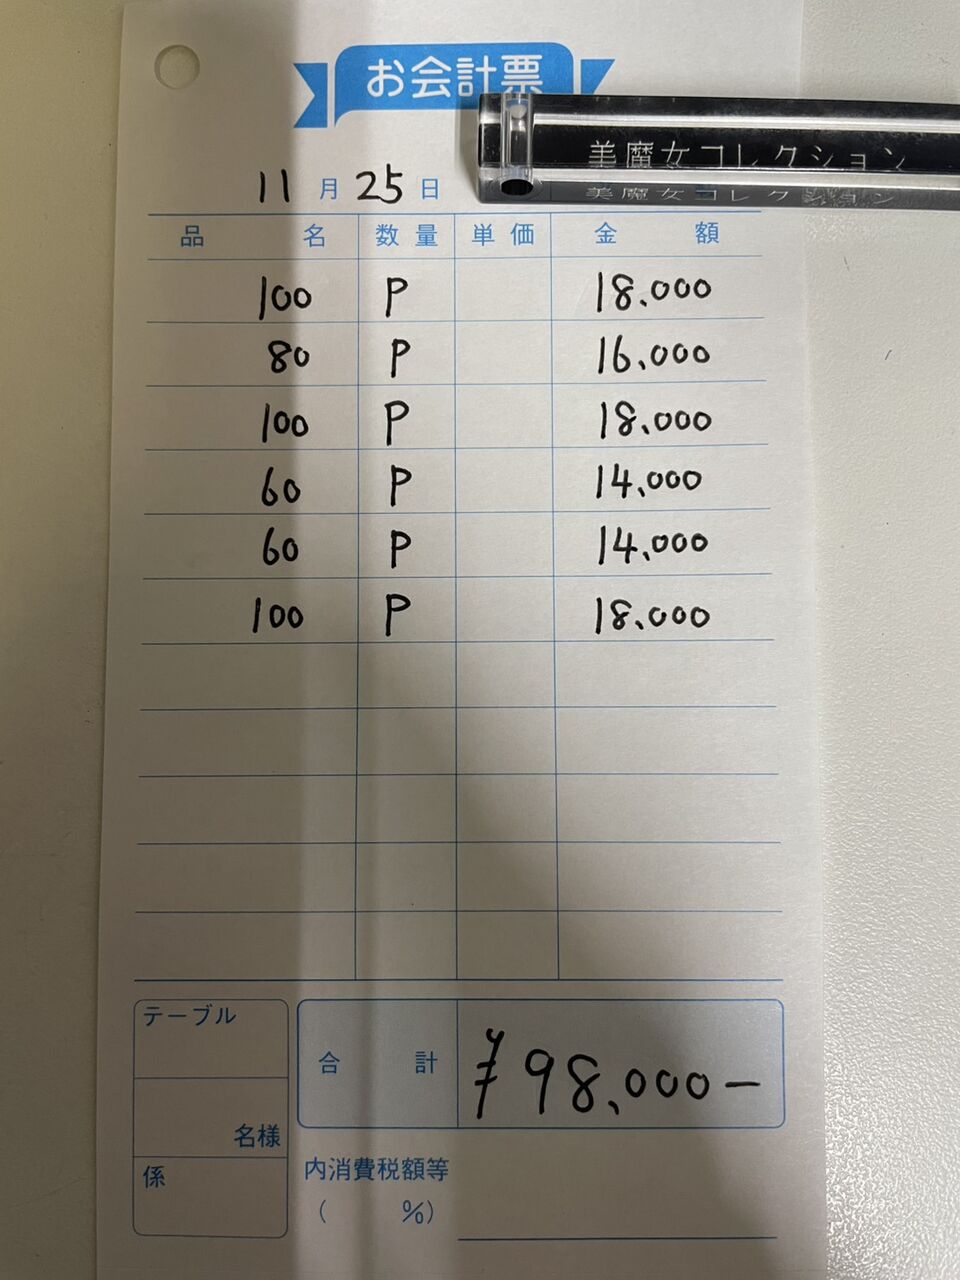 お会計票
美魔女コレクション
美魔女コレクション
11月25日
品名 数量 単価 金額
100 P 18.000
80 P 16.000
100 P 18.000
60 P 14.000
60 P 14.000
100 P 18.000
テーブル
名様
係
合計 ¥98.000-
内消費税額等
( %)